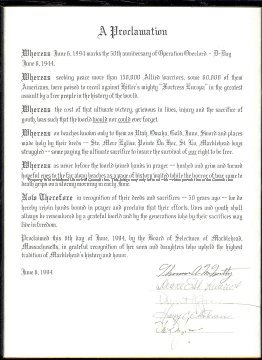 A Proclamation
Whereas June 6, 1994 marks the 50th anniversary of Operation Overlord - D-Day
June 6, 1944.
Whereas seeking peace more than 150,000 Allied warriors, some 60,000 of them
Americans, were poised to recoil against Hitler's mighty "Fortress Europa" in the greatest
assault by a free people in the history of the world.
Whereas the cost of that ultimate victory, grievous in lives, injury and the sacrifice of
youth, was such that the world would nor could ever forget.
Whereas on beaches known only to them as Utah, Omaha, Gold, Juno, Sword and places
made holy by their deeds -- Ste. Mere Eglise, Pointe Du Hoc, St. Lo, Marblehead boys
struggled -- some paying the ultimate sacrifice to insure the survival of our right to be free.
Whereas as never before the world joined hands in prayer -- hushed and grim and turned
hopeful eyes to the far away beaches as a page of history waited while the horror of war came to
deadly grips on a stormy morning in early June.
Now Therefore in recognition of their deeds and sacrifices -- 50 years ago -- we do
hereby rejoin hands bound in prayer and proclaim that their efforts, lives and youth shall
always be remembered by a grateful world and by the generations who by their sacrifices may
live in freedom.
Proclaimed this 6th day of June, 1994, by the Board of Selectmen of Marblehead,
Massachusetts, in grateful recognition of her sons and daughters who uphold the highest
tradition of Marblehead's history and honor.
June 6, 1994